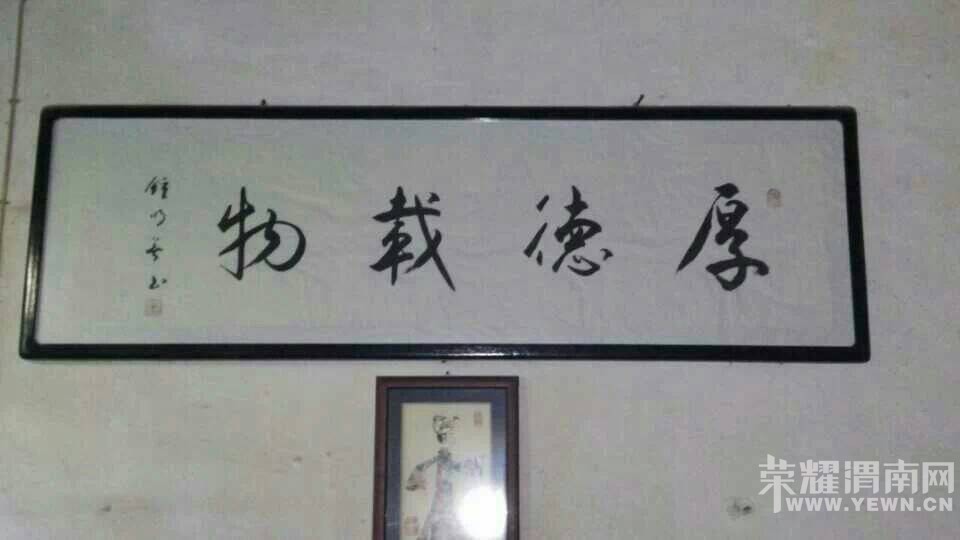 厚德载物
荣耀渭南网
WWW.YEWN.CN